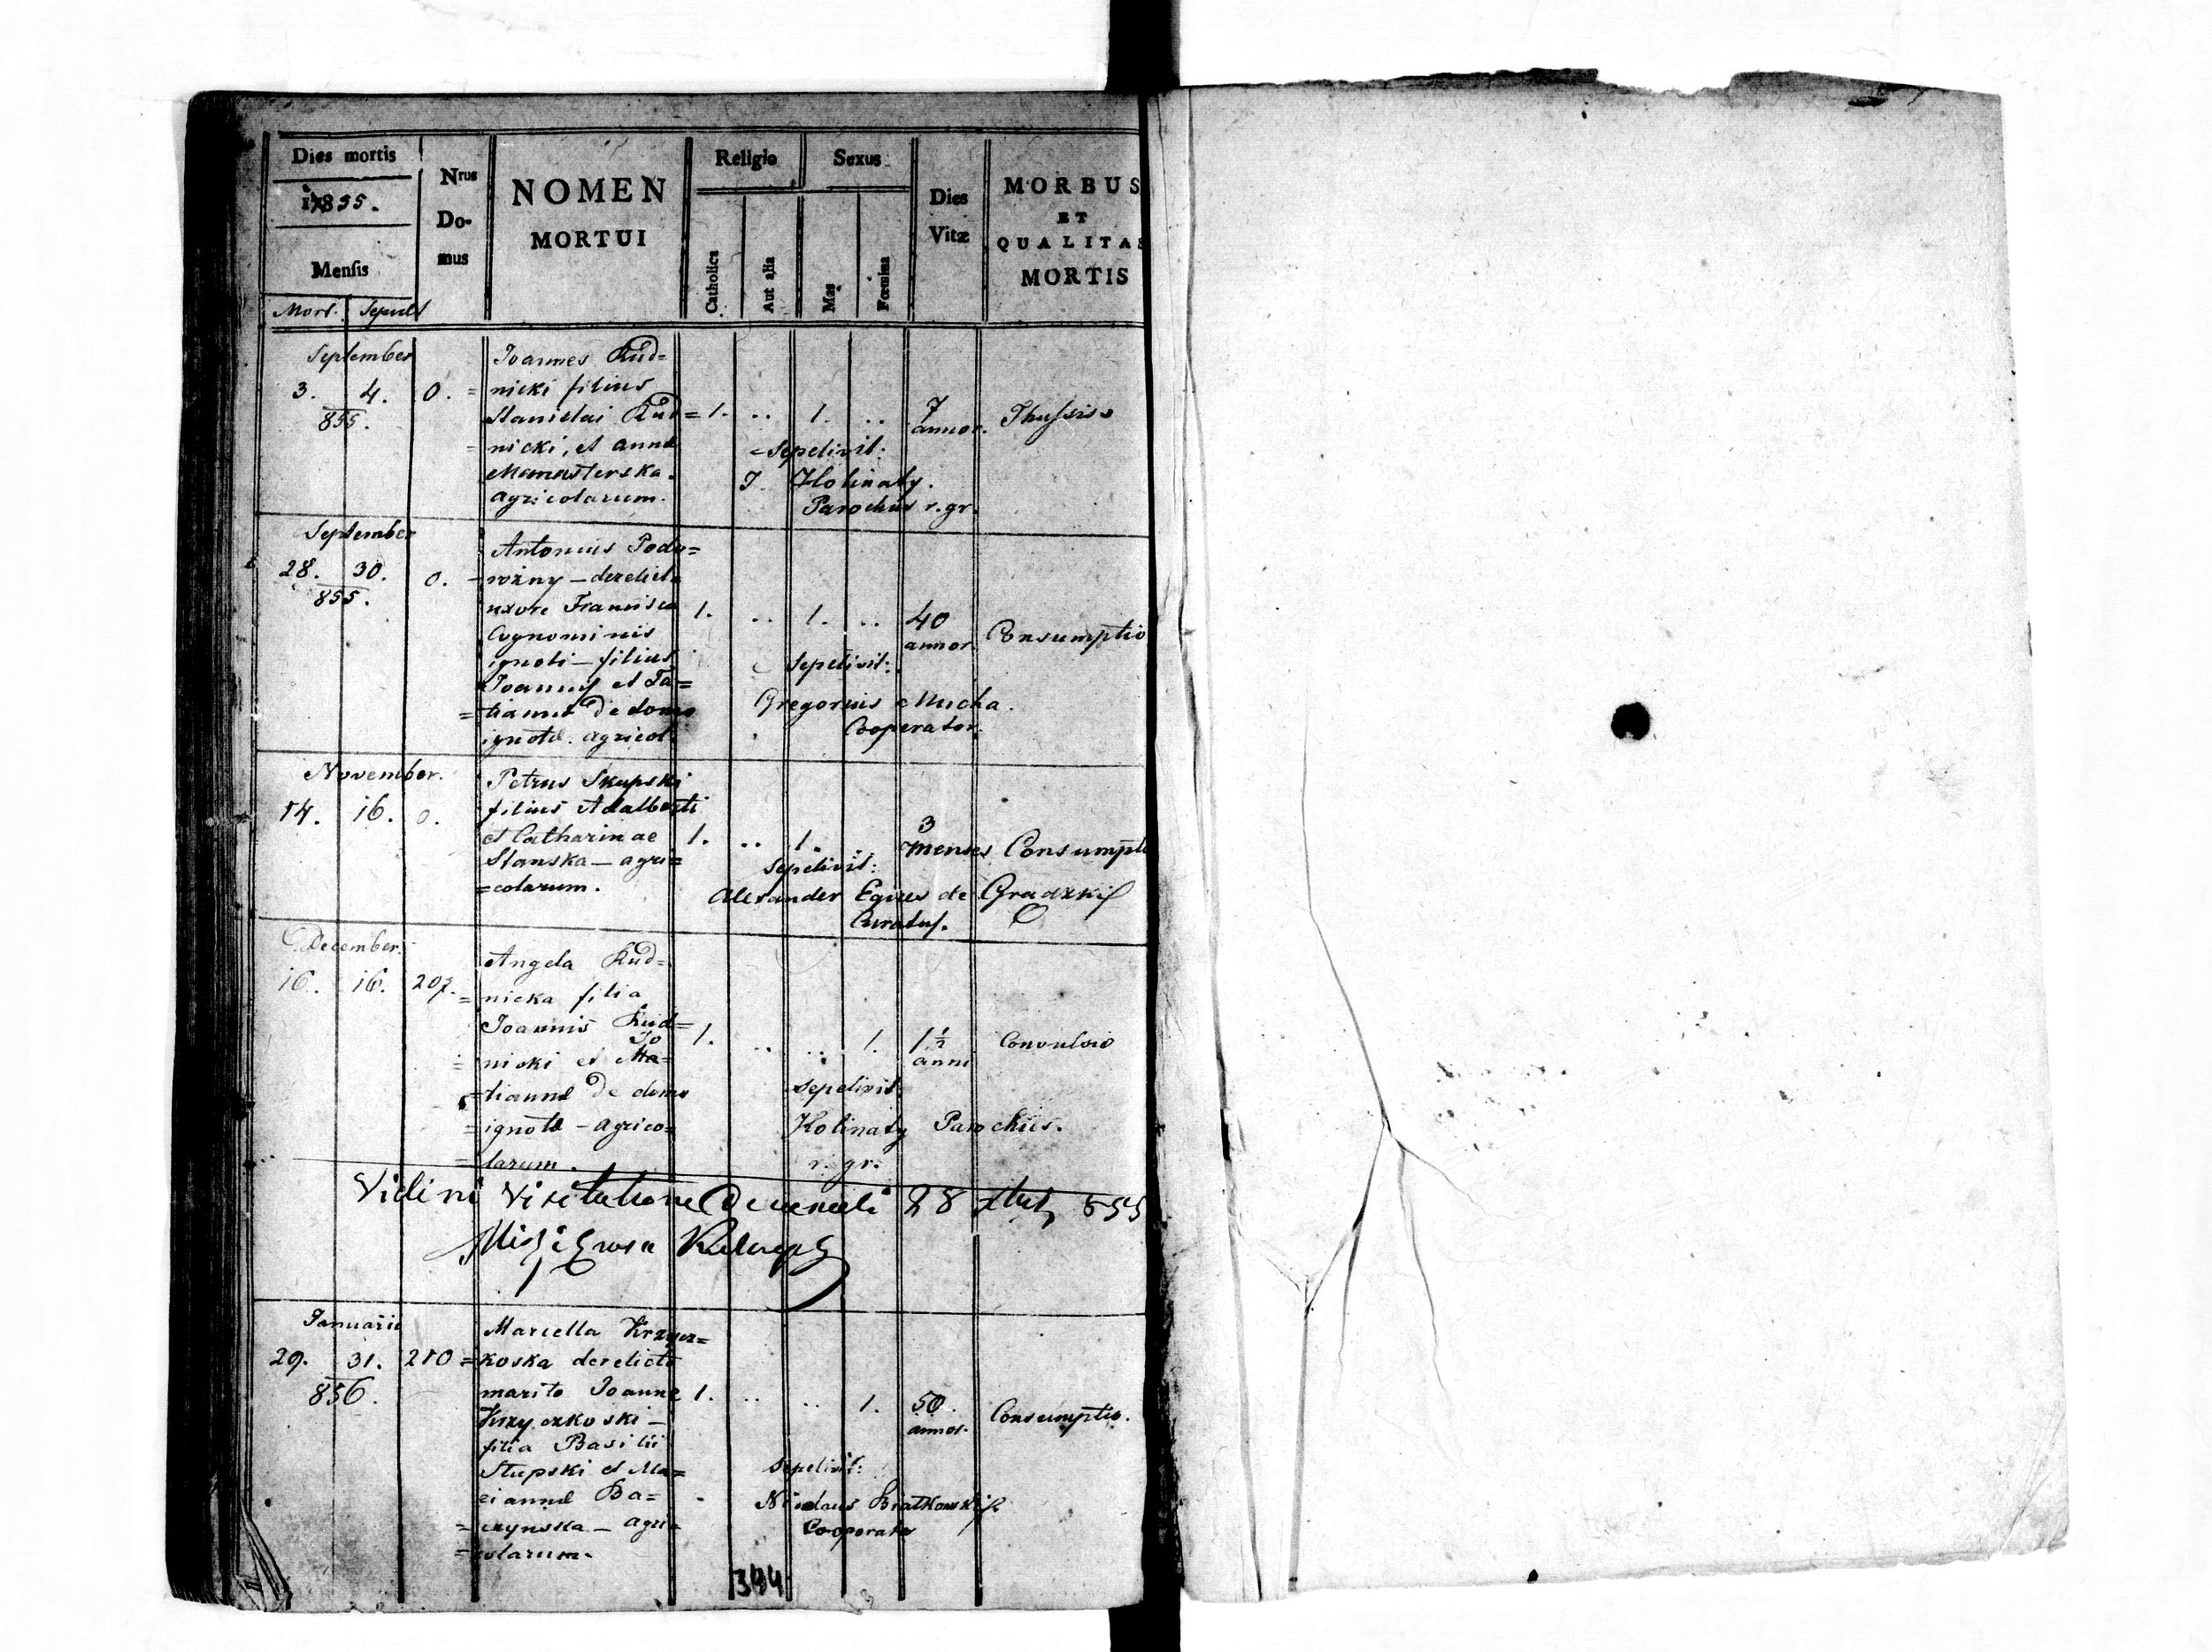 Dies mortis
1855.
Mensis
Mort. Sepult
Nrus
Do-
mus
NOMEN
MORTUI
Religio
Catholica
Aut alia
Sexus
Mas
Fœmina
Dies
Vitæ
MORBUS
ET
QUALITAS
MORTIS
September
3. 4. 0.
855.
Joannes Rud=
nicki filius
Stanislai Rud=
nicki, et Annæ
Monasterska.
agricolarum.
1. .. 1. ..
7
annor.
Sepelivit:
J Holinaty.
Parochus r. gr.
September
28. 30. 0.
855.
Antonius Podu=
rożny — derelicta
uxore Francisca
Cognominis
ignoti — filius
Joannis et Ta=
=tiannæ de domo
ignotæ. agricol.
1. .. 1. ..
40
annor.
Consumptio
Sepelivit:
Gregorius Mucha.
Cooperator.
November.
14. 16. 0.
Petrus Skupski
filius Adalberti
et Catharinae
Stanska — agri=
=colarum.
1. .. 1. ..
3
menses
Consumpti
Sepelivit:
Alexander Eques de Gradzki
Curatus.
December.
16. 16. 207.
Angela Rud=
=nicka filia
Joannis Rud=
nicki et Ta=
=tiannæ de domo
=ignotæ — agrico=
=larum.
1. .. .. 1.
1½
anni
Convulsio
Sepelivit:
Holinaty Parochus.
r. gr.
Vidi in Visitatione Decanali 28 855
Januarii
29. 31. 210
856.
Marcella Krzycz=
=koska derelicto
marito Joanne
Krzyczkoski —
filia Basilii
Słupski et Ma=
riannæ Ba=
=czynska — agri=
=colarum.
1. .. .. 1.
50.
annor.
Consumptio.
Sepelivit:
Nicolaus Białkowski
Cooperator
344